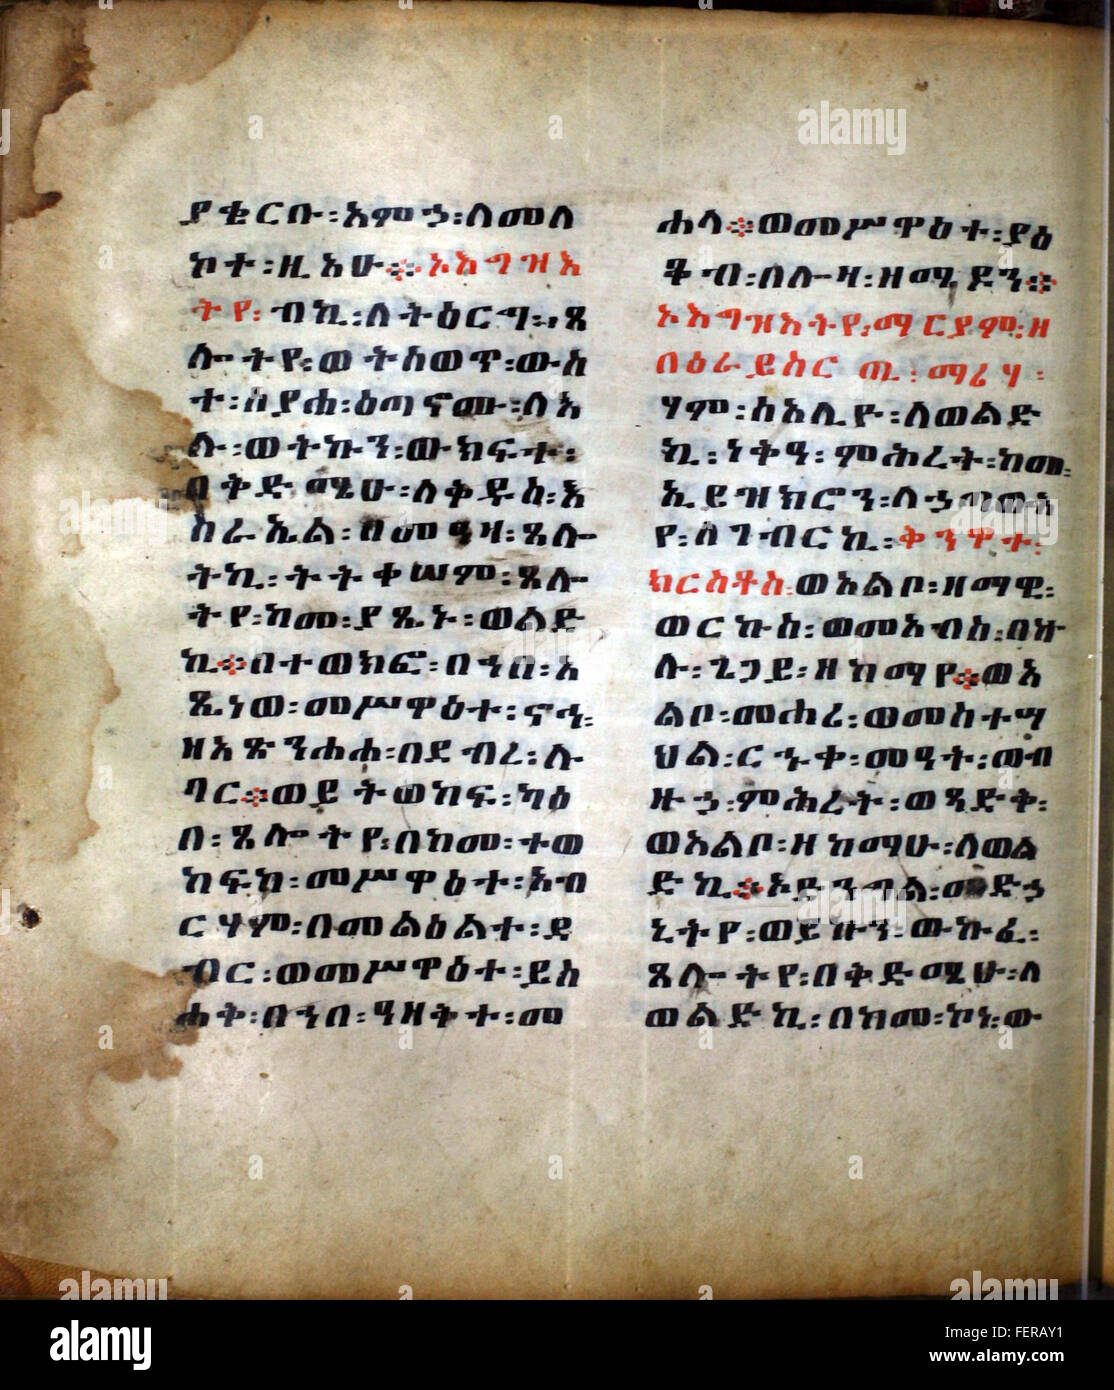 ያቄርቡ፡አምኃ፡ለመለ
ኮተ፡ዚአሁ፨ኦእግዝእ
ትየ፡ብኪ፡ለትዕርግ፡ጸ
ሎትየ፡ወትስወጥ፡ውስ
ተ፡ስያሐ፡ዕጣኖሙ፡ለአ
ሉ፡ወትኩን፡ውክፍተ፡
በቅድሜሁ፡ለቅዱስ፡እ
ስራኤል፡በመዓዛ፡ጼሉ
ትኪ፡ትትቀሠም፡ጼሉ
ትየ፡ከመ፡ያጼኑ፡ወልድ
ኪ፨በተወክፎ፡በኀበ፡አ
ጼነወ፡መሥዋዕተ፡ኖኅ፡
ዘአጽንሐሐ፡በደብረ፡ሉ
ባር፨ወይትወከፍ፡ካዕ
በ፡ጼሎትየ፡በከመ፡ተወ
ከፍከ፡መሥዋዕተ፡አብ
ርሃም፡በመልዕልተ፡ደ
ብር፡ወመሥዋዕተ፡ይስ
ሐቅ፡በኀበ፡ዓዘቅተ፡መ
ሐላ፨ወመሥዋዕተ፡ያዕ
ቆብ፡በሉዛ፡ዘሜዶን፨
ኦእግዝእትየ፡ማርያም፡ዘ
በዕራይስርጢ፡ማሪሃ፡
ሃም፡ስአሊዮ፡ለወልድ
ኪ፡ነቅዓ፡ምሕረት፡ከመ፡
ኢይዝክሮን፡ለኃጣውእ
የ፡ለገብርኪ፡ቅንዋተ፡
ክርስቶስ፡ወአልቦ፡ዘማዊ፡
ወርኩስ፡ወመአብስ፡በዙ
ሉ፡ጊጋይ፡ዘከማየ፨ወአ
ልቦ፡መሐሪ፡ወመስተሣ
ህል፡ርኁቀ፡መዓት፡ወብ
ዙኃ፡ምሕረት፡ወጻድቅ፡
ወአልቦ፡ዘከማሁ፡ለወል
ድኪ፨ኦድንግል፡መድኃ
ኒትየ፡ወይዙን፡ውኩፈ፡
ጼሎትየ፡በቅድሜሁ፡ለ
ወልድኪ፡በከመ፡ኮነ፡ው